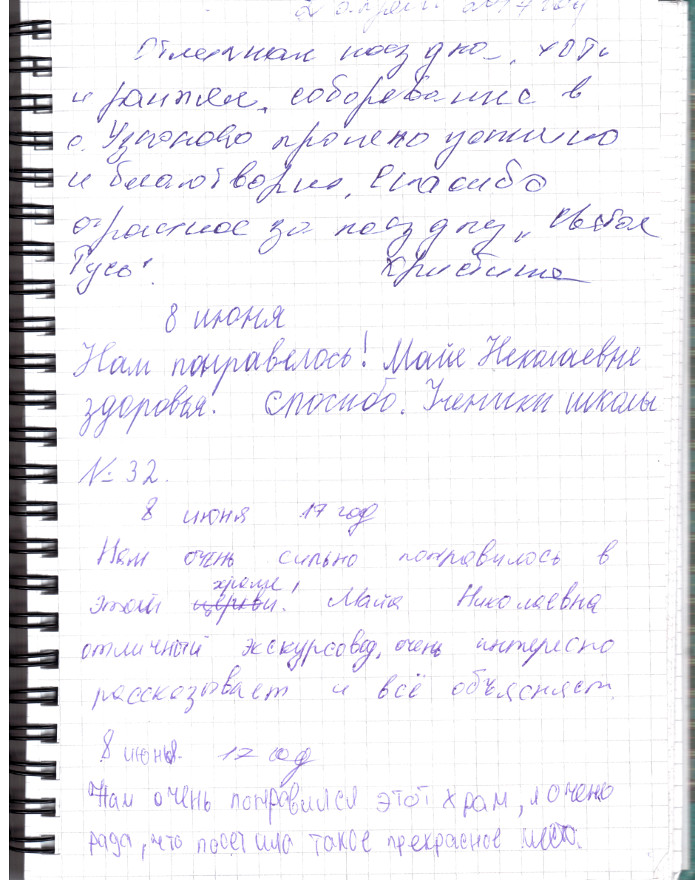 2 апреля 2017 год
Отличная поездка, хоть
и ранняя, соборование в
с. прошло успешно
и благотворно. Спасибо
огромное за поездку, "Святая
Русь". Кристина
8 июня
Нам понравелось! Майе Неколаевне
здоровья! Спосибо. Ученики школы
№ 32.
8 июня 17 год
Нам очень сильно понравилось в
этом церкви храме! Майа Николаевна
отличный экскурсовод, очень интересно
рассказывает и всё объясняет.
8 июня 17 год
Нам очень понравился этот храм, я очень
рада, что посетила такое прекрасное место.